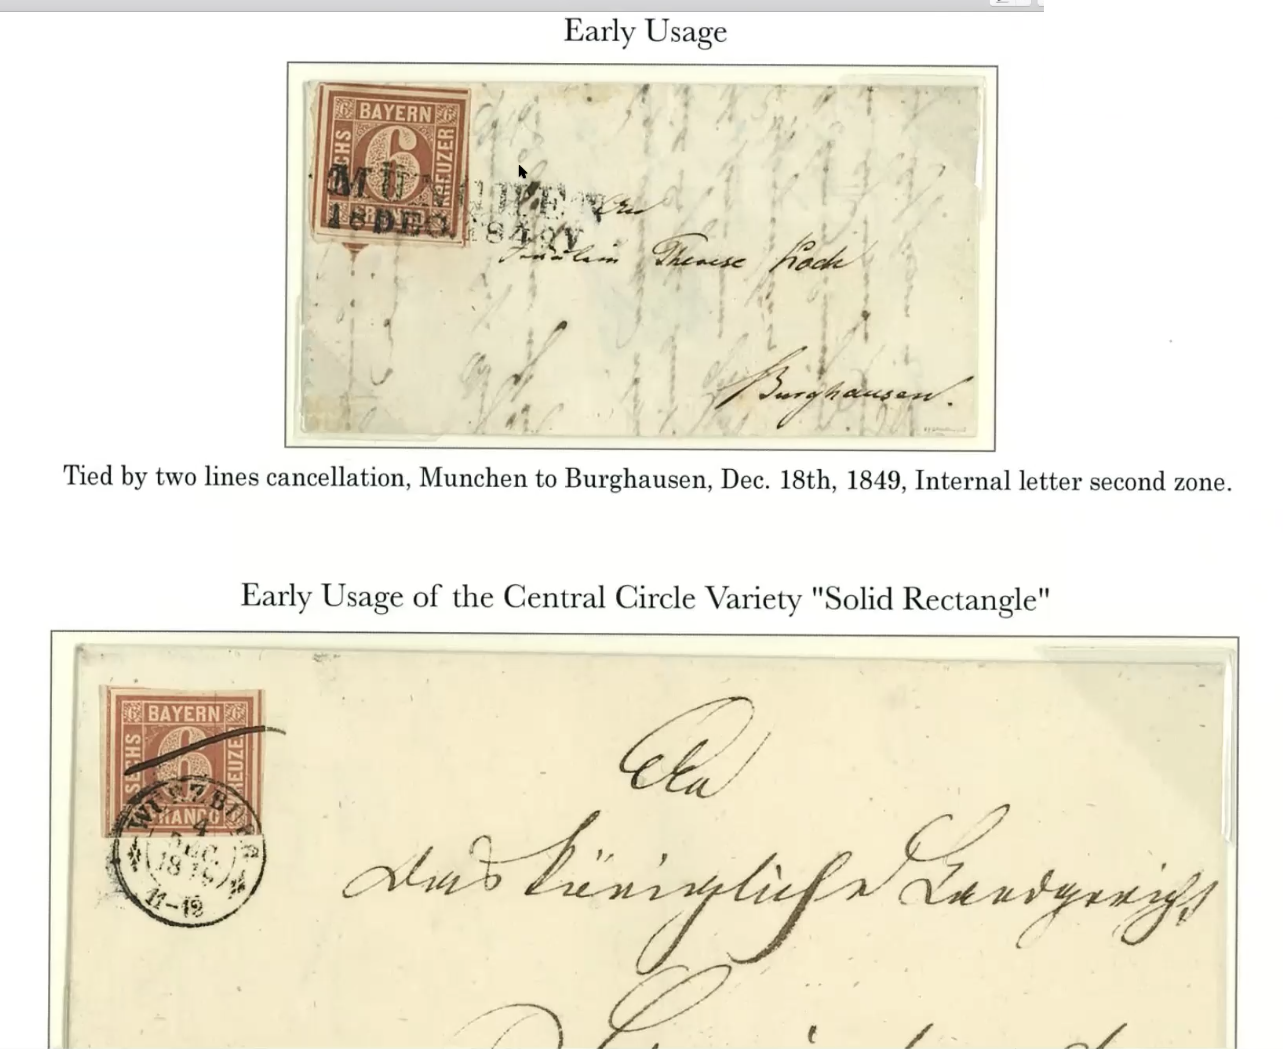 Early Usage
6 BAYERN 6
SECHS
6
KREUZER
MÜNCHEN
18 DEC. 1849
An
Fräulein Therese Koch
Burghausen.
Tied by two lines cancellation, Munchen to Burghausen, Dec. 18th, 1849, Internal letter second zone.
Early Usage of the Central Circle Variety "Solid Rectangle"
6 BAYERN 6
SECHS
6
KREUZER
FRANCO
WÜRZBURG
4
DEC.
11-12
An
Das Königliche Landgericht